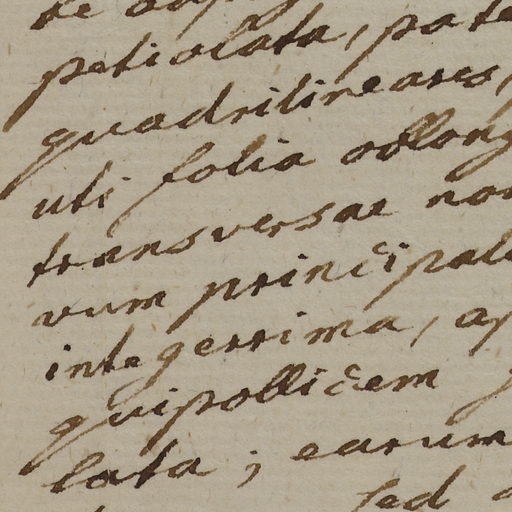 petiolata, pate
quadrilineares,
uti folia oblong
transversae non
vum principale
integerrima, ap
quipollicem
lata; earum
sed